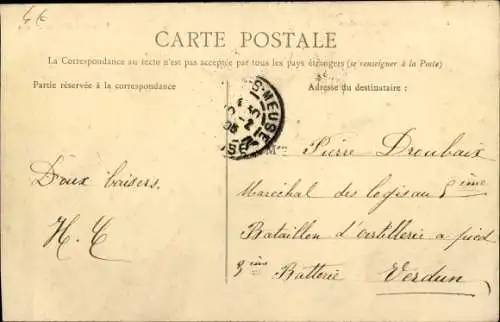 4€
CARTE POSTALE
La Correspondance au recto n'est pas acceptée par tous les pays étrangers (se renseigner à la Poste)
Partie réservée à la correspondance
Adresse du destinataire :
S-MEUSE
Pierre Droubaix
Doux baisers.
Maréchal des logis au 5ème
H. C
Bataillon d'artillerie a pied
9ème Batterie Verdun